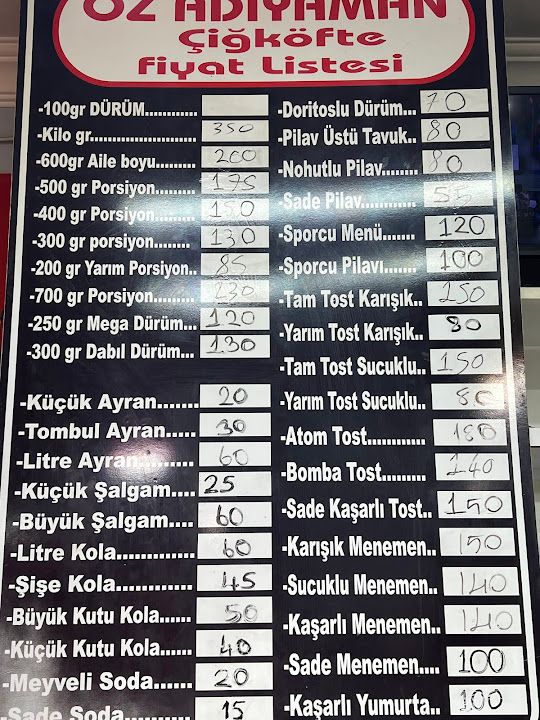 ÖZ ADIYAMAN
Çiğköfte
fiyat Listesi
-100gr DÜRÜM............
-Kilo gr..................... 350
-600gr Aile boyu......... 200
-500 gr Porsiyon......... 175
-400 gr Porsiyon.........
-300 gr porsiyon........ 130
-200 gr Yarım Porsiyon.. 85
-700 gr Porsiyon......... 230
-250 gr Mega Dürüm... 120
-300 gr Dabıl Dürüm... 130
-Küçük Ayran....... 20
-Tombul Ayran..... 30
-Litre Ayran.......... 60
-Küçük Şalgam.... 25
-Büyük Şalgam.... 60
-Litre Kola............. 60
-Şişe Kola............. 45
-Büyük Kutu Kola...... 50
-Küçük Kutu Kola...... 40
-Meyveli Soda............ 20
-Sade Soda............ 15
-Doritoslu Dürüm... 70
-Pilav Üstü Tavuk.. 80
-Nohutlu Pilav........ 80
-Sade Pilav............ 55
-Sporcu Menü....... 120
-Sporcu Pilavı....... 100
-Tam Tost Karışık..
-Yarım Tost Karışık.. 80
-Tam Tost Sucuklu.. 150
-Yarım Tost Sucuklu.. 80
-Atom Tost............ 180
-Bomba Tost.......... 140
-Sade Kaşarlı Tost.. 150
-Karışık Menemen.. 150
-Sucuklu Menemen.. 140
-Kaşarlı Menemen.. 140
-Sade Menemen.... 100
-Kaşarlı Yumurta.. 100